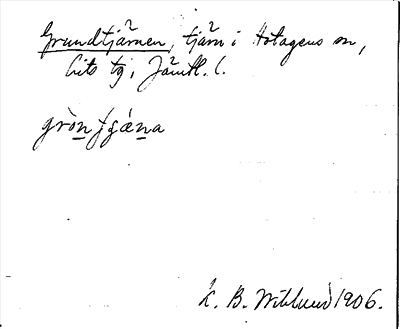 Grundtjärnen, tjärn i Hotagens sn,
Lits tg, Jämtl. l.
K. B. Wiklund 1906.